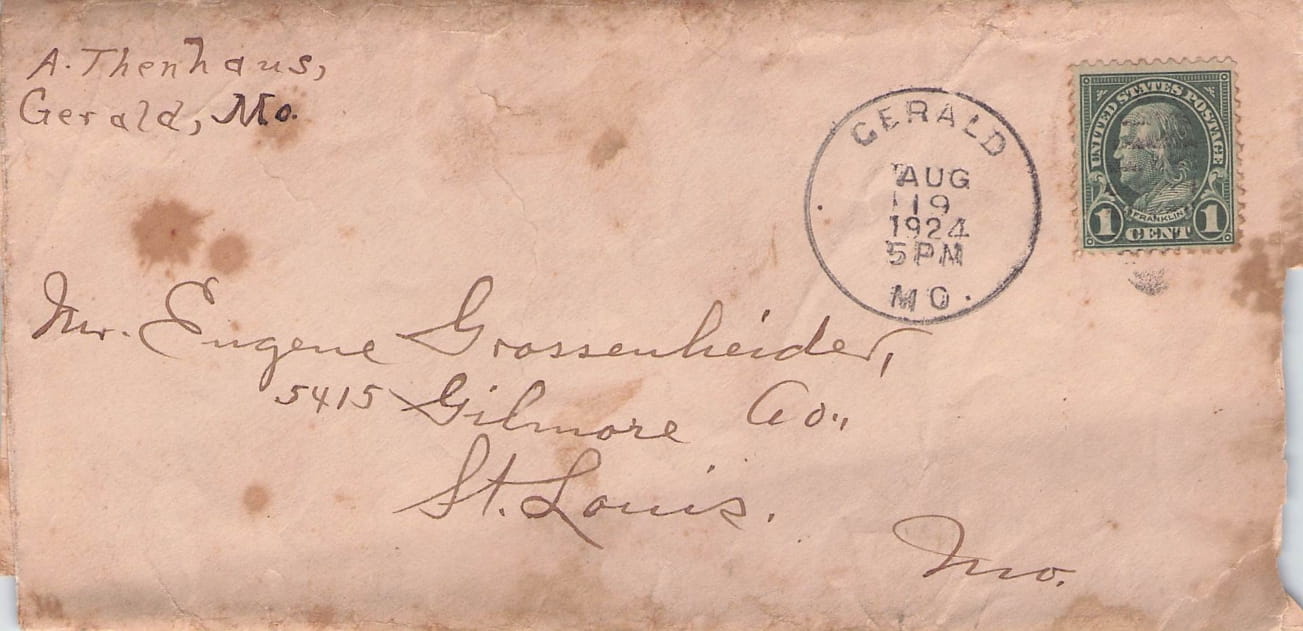 A. Thenhaus,
Gerald, Mo.
GERALD
AUG
19
1924
5 PM
MO.
UNITED STATES POSTAGE
FRANKLIN
1 CENT 1
Mr. Eugene Grossenheider,
5415 Gilmore Av.,
St. Louis.
Mo.